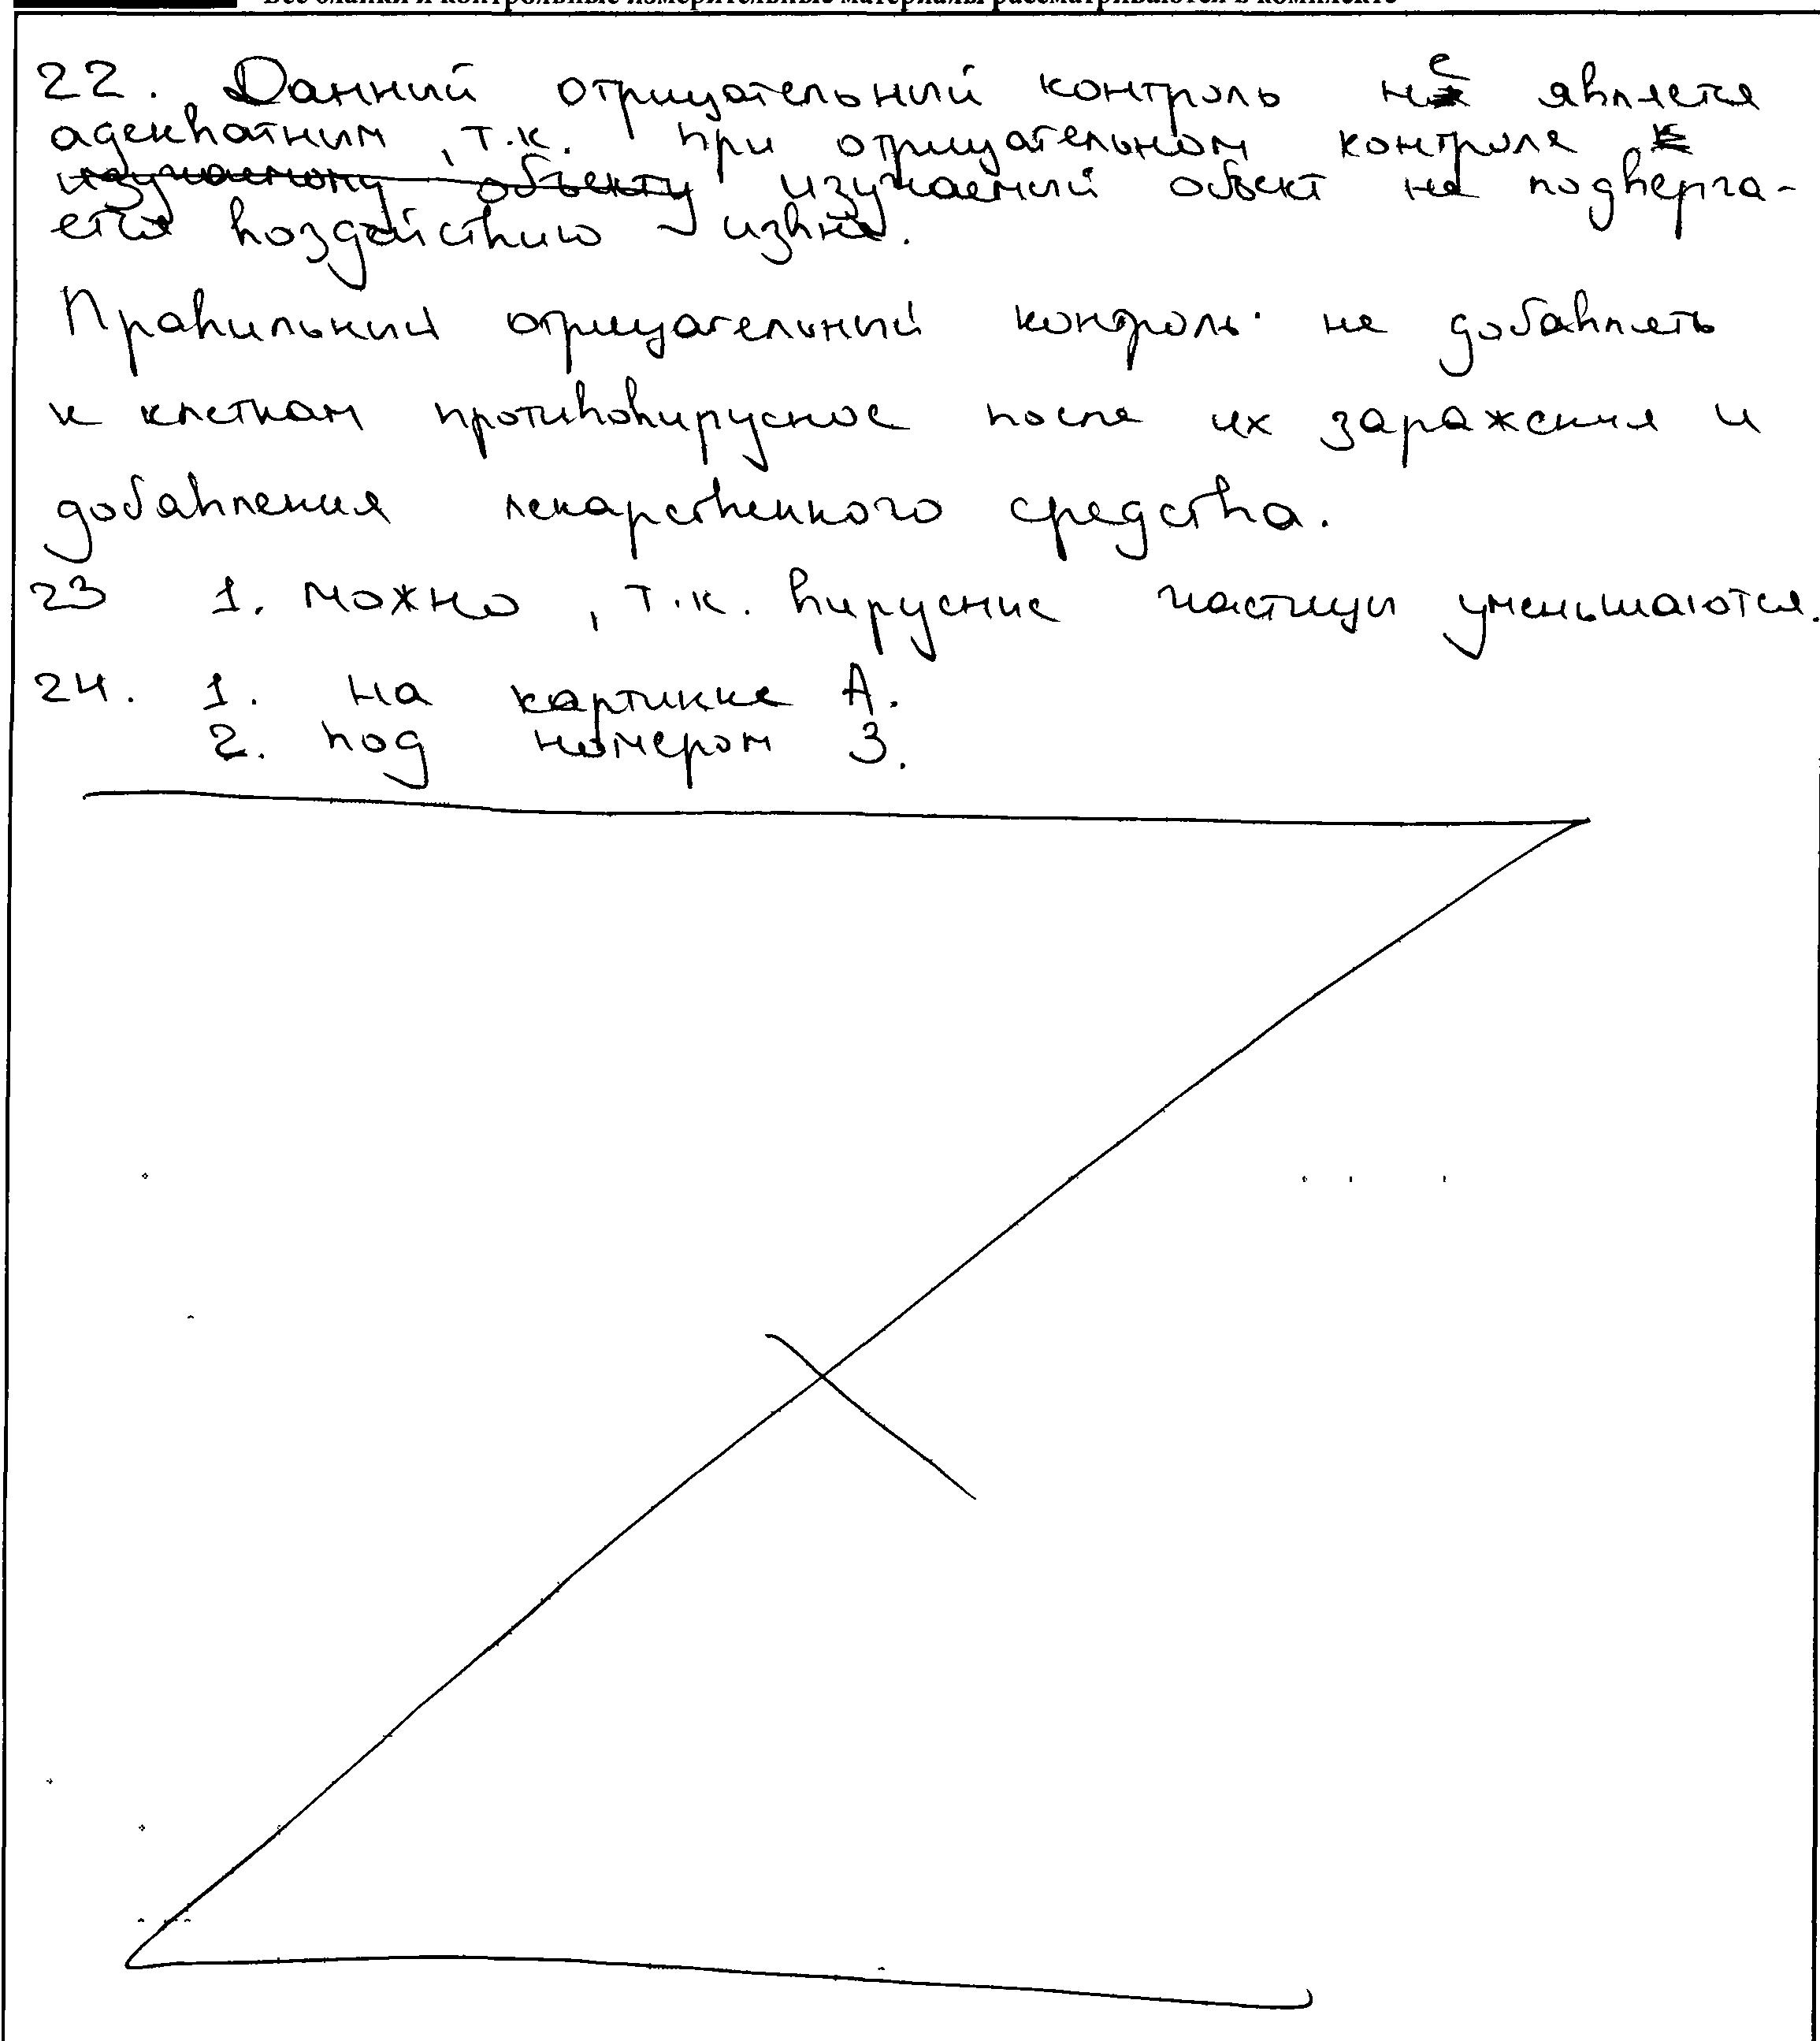 Все бланки и контрольные измерительные материалы рассматриваются в комплекте
22. Данный отрицательный контроль не является
адекватным, т.к. при отрицательном контроле к
изучаемому объекту изучаемый объект не подверга-
ется воздействию извне.
Правильный отрицательный контроль: не добавлять
к клеткам противовирусное после их заражения и
добавления лекарственного средства.
23 1. можно, т.к. вирусные частицы уменьшаются.
24. 1. на картинке А.
2. под номером 3.